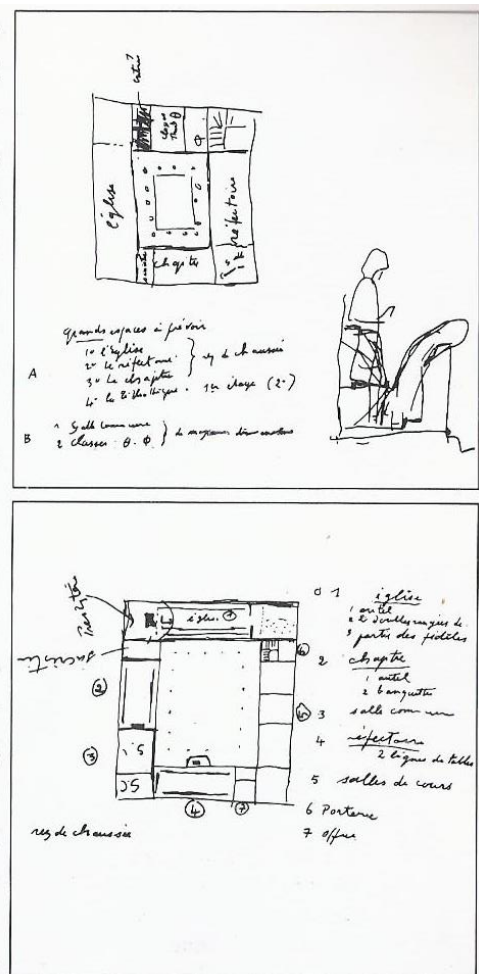 entrée
classes
Θ
Φ
église
réfectoire
chapitre
Grands espaces à prévoir
A
1° L'Eglise
2° Le réfectoire
3° Le chapitre
rez de chaussée
4° la Bibliothèque . 1er étage (2°)
B
1 Salle commune
2 classes : θ . Φ
de moyennes dimensions
Presbytère
église
1
sacristie
2
3
S.C
S.C
4
7
6
5
rez de chaussée
0 1 église
1 autel
2 2 doubles rangées de
3 partie des fidèles
2 chapitre
1 autel
2 banquettes
3 salle commune
4 réfectoire
2 lignes de tables
5 salles de cours
6 Porterie
7 office